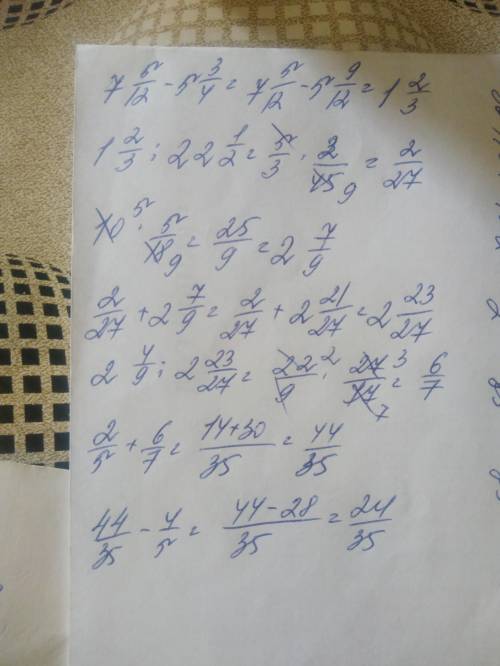 7 5/12 - 5 3/4 = 7 5/12 - 5 9/12 = 1 2/3
1 2/3 : 22 1/2 = 5/3 · 2/45 9 = 2/27
10 5 · 5/18 9 = 25/9 = 2 7/9
2/27 + 2 7/9 = 2/27 + 2 21/27 = 2 23/27
2 4/9 : 2 23/27 = 22/9 2 · 27/77 3 7 = 6/7
2/5 + 6/7 = 14+30/35 = 44/35
44/35 - 4/5 = 44-28/35 = 24/35